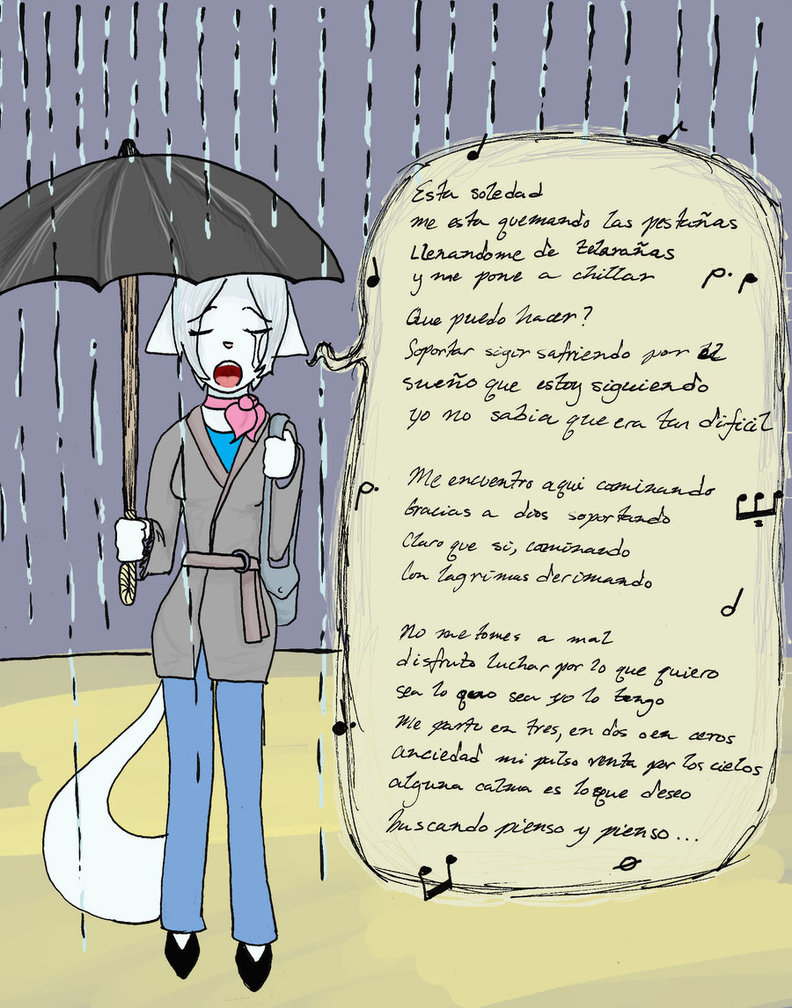 Esta soledad
me esta quemando las pestañas
Llenandome de telarañas
y me pone a chillar
Que puedo hacer?
Soportar sigir safriendo por el
sueño que estoy siguiendo
yo no sabia que era tan dificil
Me encuentro aqui caminando
Gracias a dios soportando
Claro que si, caminando
Con lagrimas derimando
No me tomes a mal
disfruto luchar por lo que quiero
sea lo que sea yo lo tengo
Me parto en tres, en dos o en ceros
anciedad mi pulso renta por los cielos
alguna calma es loque deseo
buscando pienso y pienso...